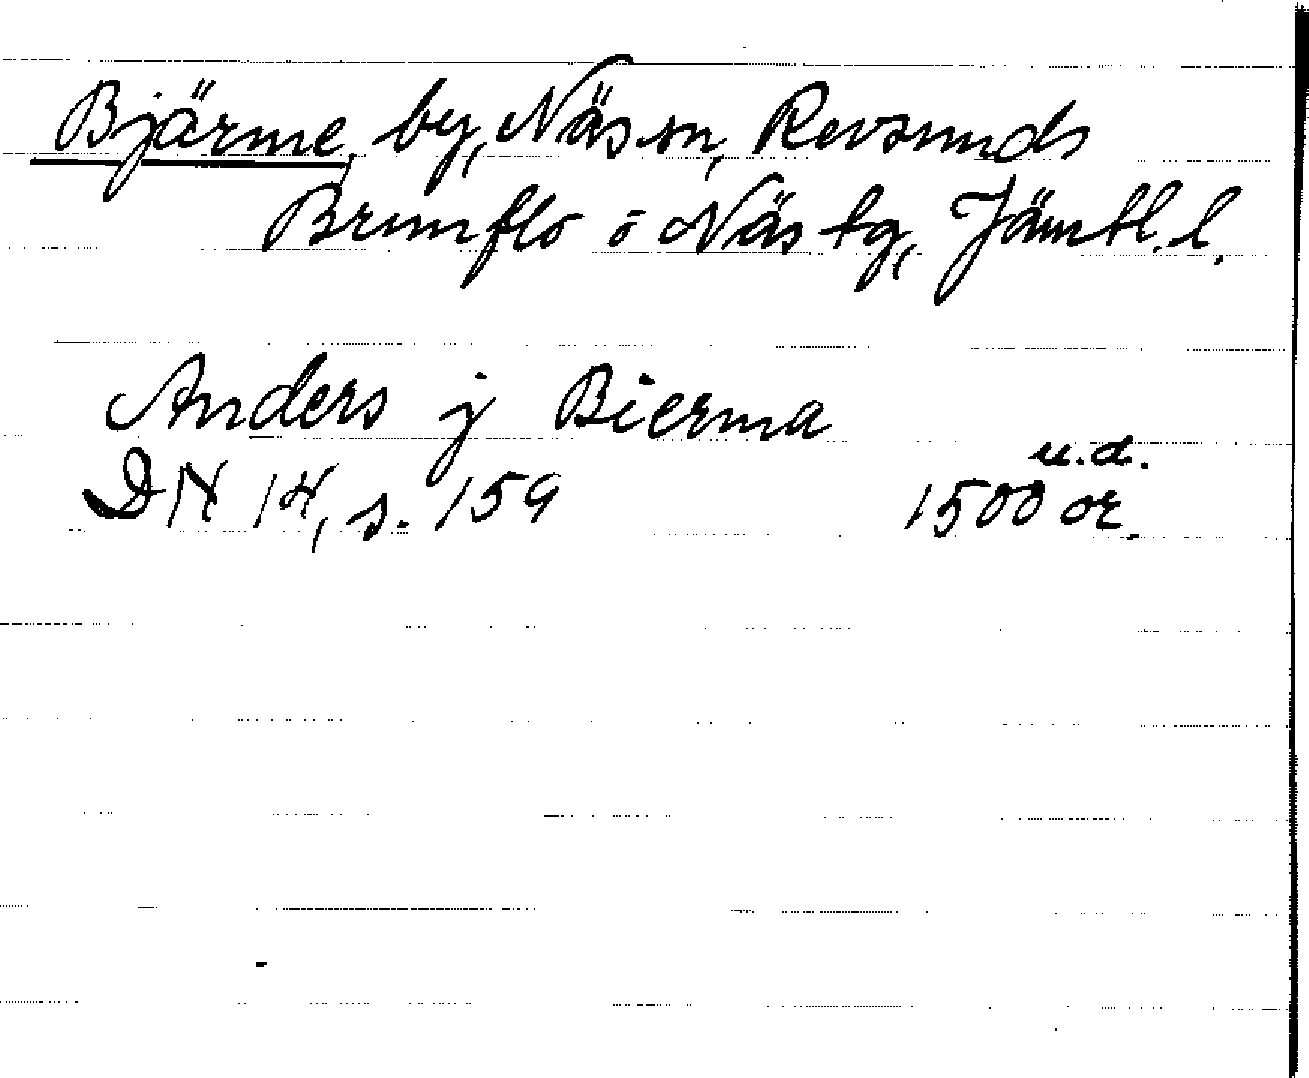 Bjärme, by, Näs sn, Revsunds
Brunflo o Näs tg, Jämtl. l.
Anders j Bierma
u.d.
DN 14, s. 159 1500 or.